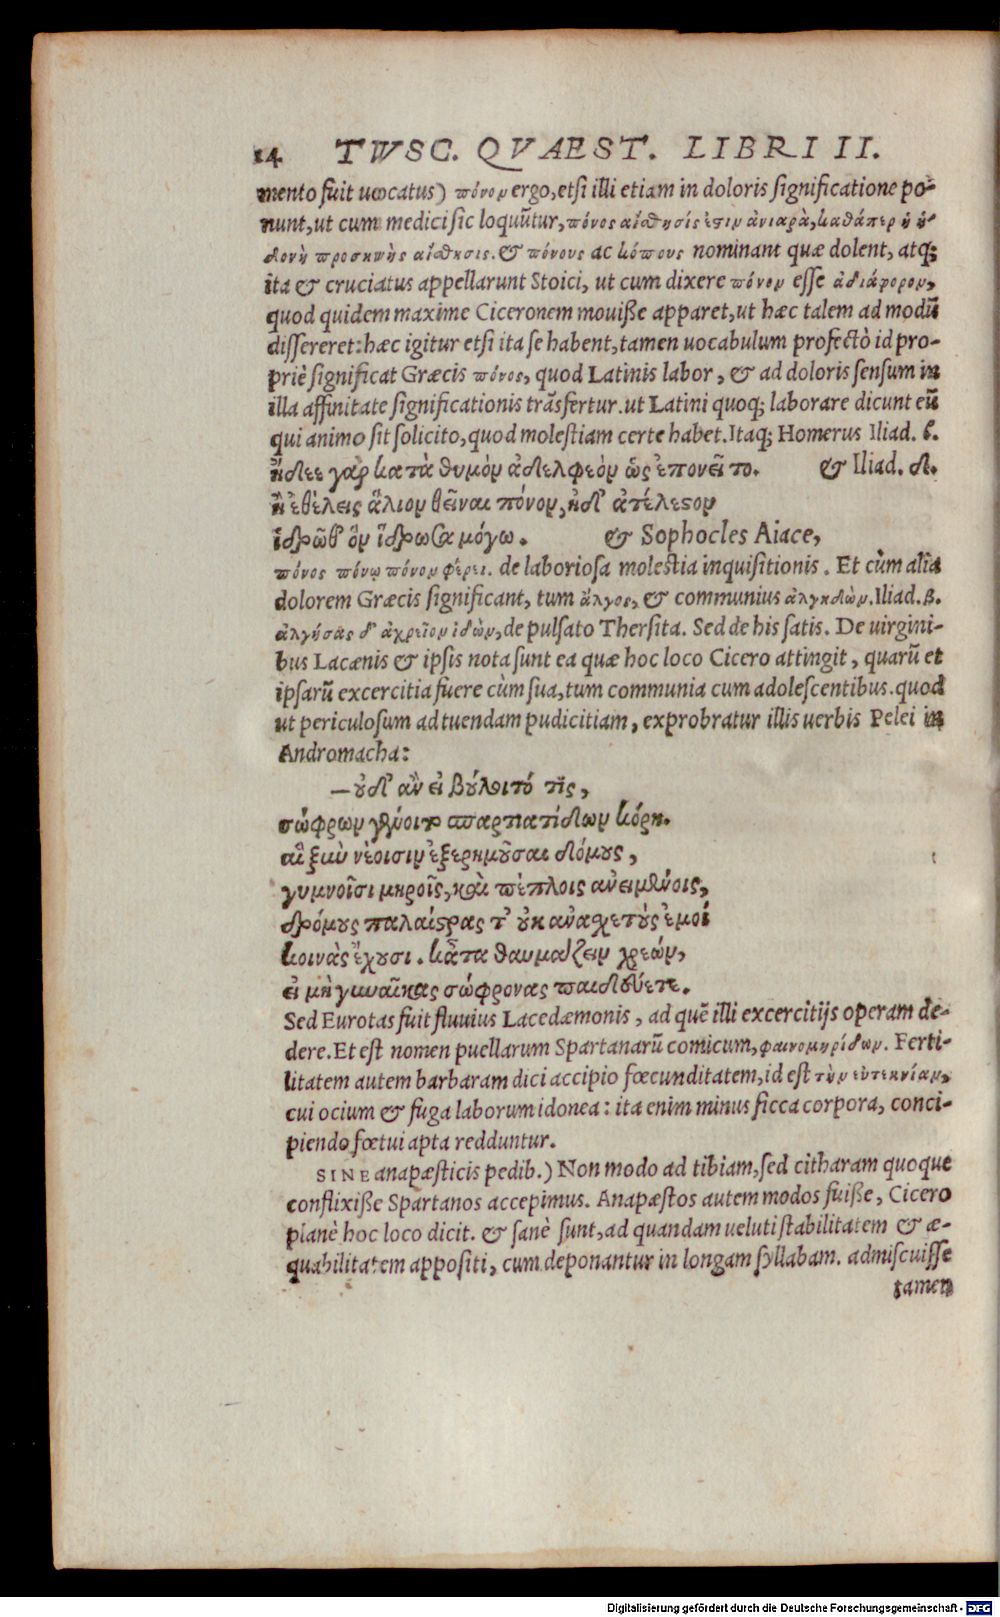 14 TVVSC. QVAEST. LIBRI II.
mento fuit uocatus) πόνον ergo, etsi illi etiam in doloris significatione po-
nunt, ut cum medici sic loquũtur, πόνος αἴσθησίς ἐστιν ἀνιαρὰ, καθάπερ ἡ ἡ-
δονὴ προσηνὴς αἴσθησις. & πόνους ac κόπους nominant quæ dolent, atq;
ita & cruciatus appellarunt Stoici, ut cum dixere πόνον esse ἀδιάφορον,
quod quidem maxime Ciceronem mouiße apparet, ut hæc talem ad modũ
dissereret: hæc igitur etsi ita se habent, tamen uocabulum profectò id pro-
priè significat Græcis πόνος, quod Latinis labor, & ad doloris sensum in
illa affinitate significationis trãsfertur. ut Latini quoq; laborare dicunt eũ
qui animo sit solicito, quod molestiam certe habet. Itaq; Homerus Iliad. β.
ἤδεε γὰρ κατὰ θυμὸν ἀδελφεὸν ὡς ἐπονεῖτο. & Iliad. δ.
ἢ ἐθέλεις ἅλιον θεῖναι πόνον, ἠδ' ἀτέλεστον
ἱδρῶθ' ὃν ἵδρωσα μόγῳ. & Sophocles Aiace,
πόνος πόνῳ πόνον φέρει. de laboriosa molestia inquisitionis. Et cùm alia
dolorem Græcis significant, tum ἄλγος, & communius ἀλγηδὼν. Iliad. β.
ἀλγήσας δ' ἀχρεῖον ἰδὼν, de pulsato Thersita. Sed de his satis. De uirgini-
bus Lacænis & ipsis nota sunt ea quæ hoc loco Cicero attingit, quarũ et
ipsarũ excercitia fuere cùm sua, tum communia cum adolescentibus. quod
ut periculosum ad tuendam pudicitiam, exprobratur illis uerbis Pelei in
Andromacha:
—οὐδ' ἂν εἰ βούλοιτό τῖς,
σώφρων γένοιτο σπαρτιατίδων κόρη.
αἳ ξὺν νέοισιν ἐξερημοῦσαι δόμους,
γυμνοῖσι μηροῖς, καὶ πέπλοις ἀνειμένοις,
δρόμους παλαίστρας τ' οὐκ ἀνασχετοὺς ἐμοί
κοινὰς ἔχουσι. κᾆτα θαυμάζειν χρεών,
εἰ μὴ γυναῖκας σώφρονας παιδεύετε.
Sed Eurotas fuit fluuius Lacedæmonis, ad quẽ illi excercitijs operam de-
dere. Et est nomen puellarum Spartanarũ comicum, φαινομηρίδων. Ferti-
litatem autem barbaram dici accipio fœcunditatem, id est τὴν εὐτεκνίαν,
cui ocium & fuga laborum idonea: ita enim minus sicca corpora, conci-
piendo fœtui apta redduntur.
SINE anapæsticis pedib.) Non modo ad tibiam, sed citharam quoque
conflixiße Spartanos accepimus. Anapæstos autem modos fuiße, Cicero
planè hoc loco dicit. & sanè sunt, ad quandam ueluti stabilitatem & æ-
quabilitatem appositi, cum deponantur in longam syllabam. admiscuisse
tamen
Digitalisierung gefördert durch die Deutsche Forschungsgemeinschaft - DFG